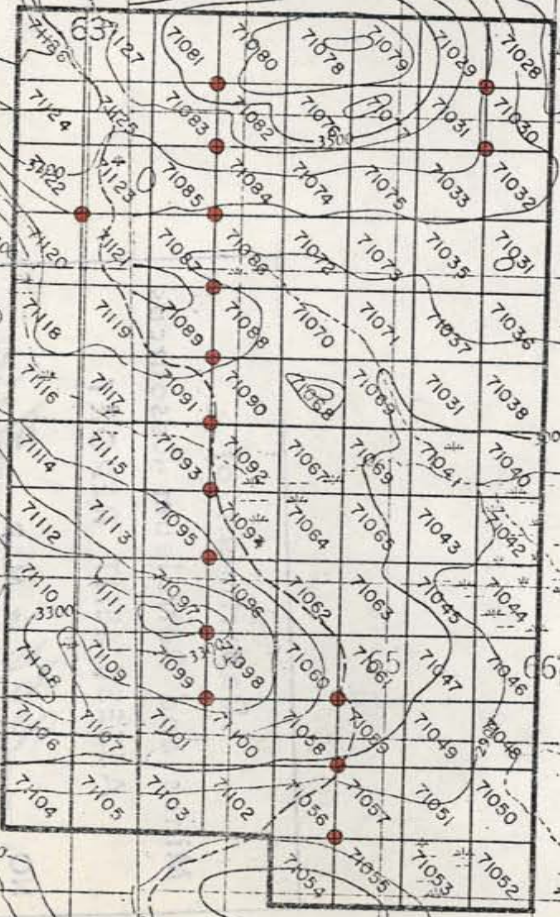 63
71126 71127 71081 71080 71078 71079 71029 71028
71124 71125 71083 71082 71076 71077 71031 71030
3500
71122 71123 71085 71084 71074 71075 71033 71032
71120 71121 71087 71086 71072 71073 71035 71031
71118 71119 71089 71088 71070 71071 71037 71036
71116 71117 71091 71090 71068 71069 71031 71038
71114 71115 71093 71092 71067 71069 71041 71040
71112 71113 71095 71094 71064 71065 71043 71042
71110 71111 71097 71096 71062 71063 71045 71044
3300
71108 71109 71099 71098 71060 71061 71047 71046
3300 65 66
71106 71107 71101 71100 71058 71059 71049 71048
71104 71105 71103 71102 71056 71057 71051 71050
71054 71055 71053 71052